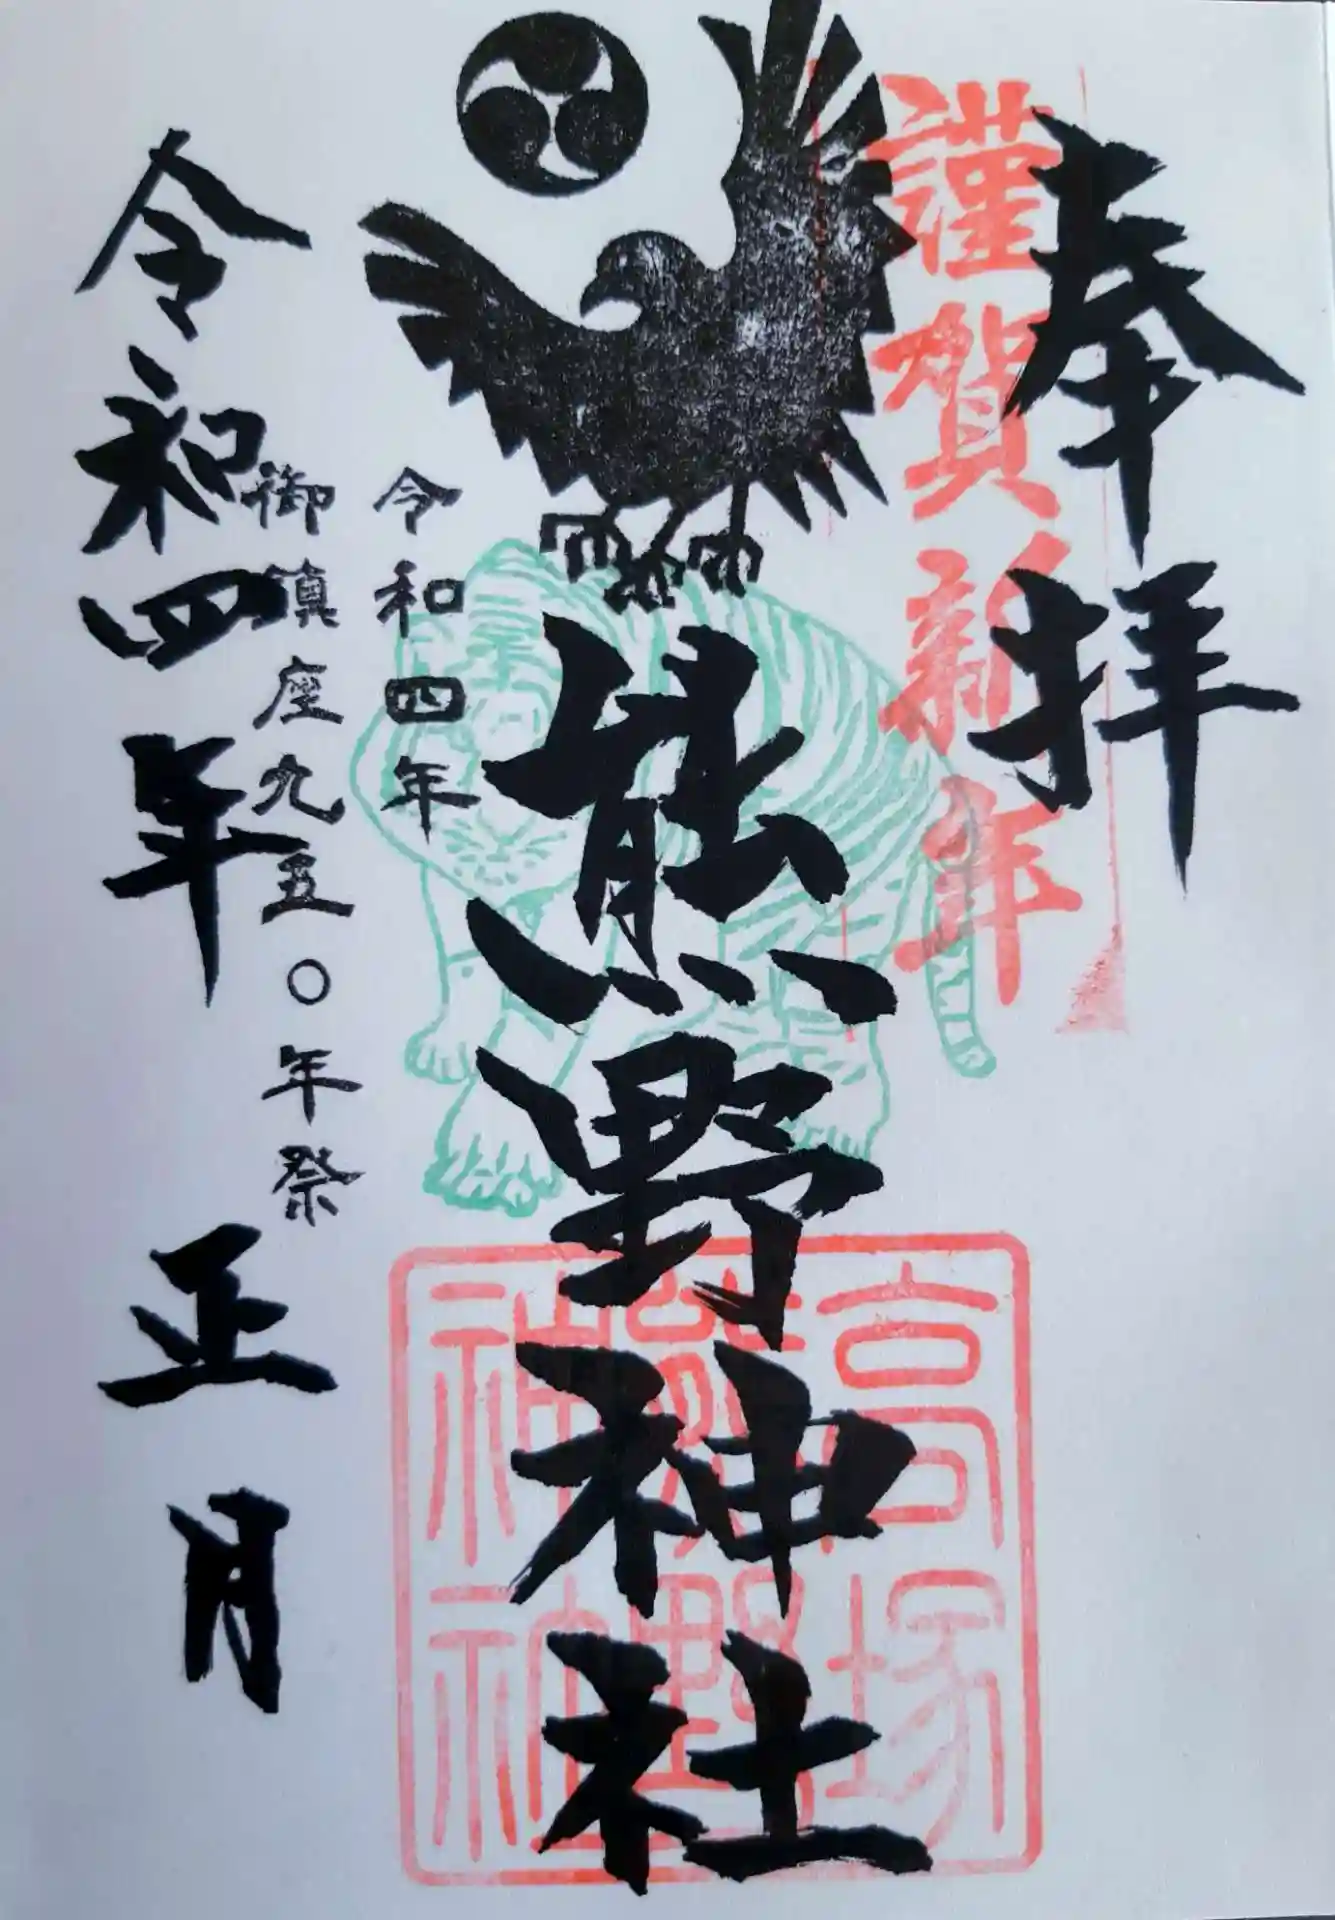 奉拝
謹賀新年
熊野神社
高塚
熊野
神社
令和四年
御鎮座九五〇年祭
令和四年 正月